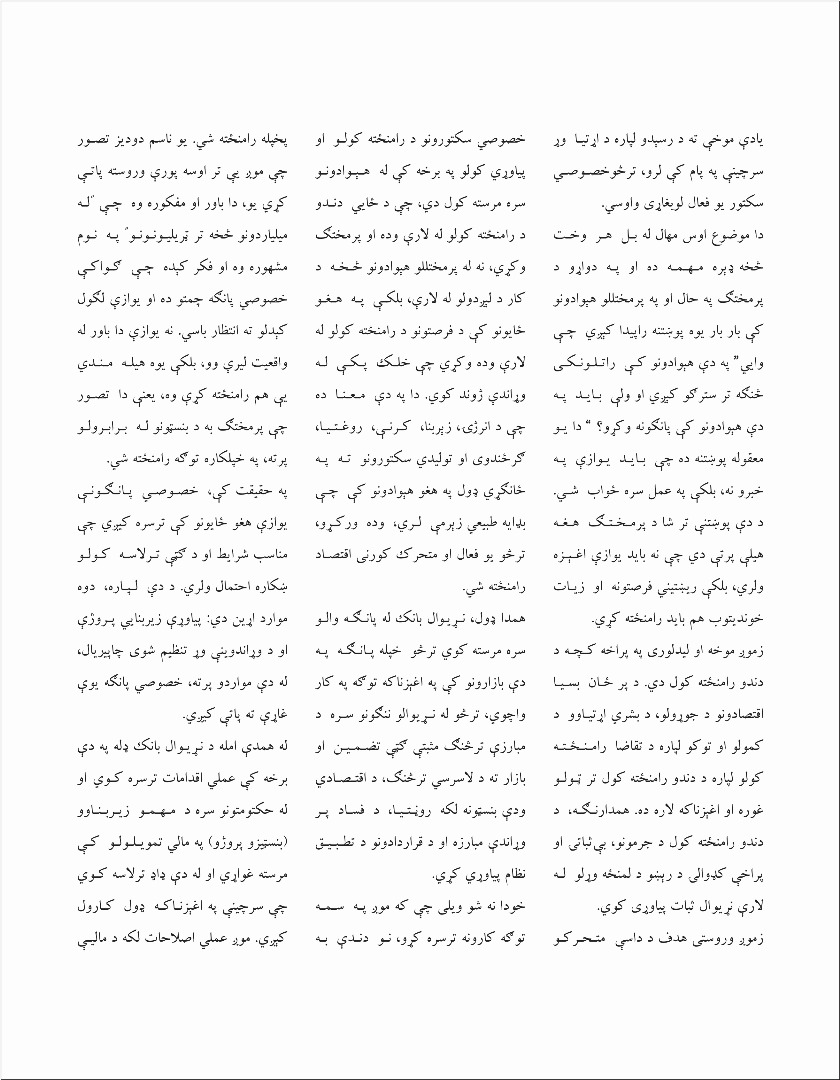 یادې موخې ته د رسېدو لپاره د اړتیا وړ
سرچینې په پام کې لرو، ترڅوخصوصي
سکتور یو فعال لوبغاړی واوسي.
دا موضوع اوس مهال له بل هر وخت
څخه ډېره مهمه ده او په دواړو د
پرمختګ په حال او په پرمختللو هېوادونو
کې بار بار یوه پوښتنه راپیدا کېږي چې
وایي" په دې هېوادونو کې راتلونکی
څنګه تر سترګو کېږي او ولې باید په
دې هېوادونو کې پانګونه وکړو؟ " دا یو
معقوله پوښتنه ده چې باید یوازې په
خبرو نه، بلکې په عمل سره ځواب شي.
د دې پوښتنې تر شا د پرمختګ هغه
هیلې پرتې دي چې نه باید یوازې اغېزه
ولري، بلکې ریښتیني فرصتونه او زیات
خوندیتوب هم باید رامنځته کړي.
زموږ موخه او لیدلوری په پراخه کچه د
دندو رامنځته کول دي. د پر ځان بسیا
اقتصادونو د جوړولو، د بشري اړتیاوو د
کمولو او توکو لپاره د تقاضا رامنځته
کولو لپاره د دندو رامنځته کول تر ټولو
غوره او اغېزناکه لاره ده. همدارنګه، د
دندو رامنځته کول د جرمونو، بې‌ثباتی او
پراخې کډوالی د رېښو د لمنځه وړلو له
لارې نړیوال ثبات پیاوړی کوي.
زموږ وروستی هدف د داسې متحرکو
خصوصي سکتورونو د رامنځته کولو او
پیاوړي کولو په برخه کې له هېوادونو
سره مرسته کول دي، چې د ځایي دندو
د رامنځته کولو له لارې وده او پرمختګ
وکړي، نه له پرمختللو هېوادونو څخه د
کار د لېږدولو له لارې، بلکې په هغو
ځایونو کې د فرصتونو د رامنځته کولو له
لارې وده وکړي چې خلک پکې له
وړاندې ژوند کوي. دا په دې معنا ده
چې د انرژۍ، زېربنا، کرنې، روغتیا،
ګرځندوی او تولیدي سکتورونو ته په
ځانګړي ډول په هغو هېوادونو کې چې
بډایه طبیعي زېرمې لري، وده ورکړو،
ترڅو یو فعال او متحرک کورنی اقتصاد
رامنځته شي.
همدا ډول، نړیوال بانک له پانګه والو
سره مرسته کوي ترڅو خپله پانګه په
دې بازارونو کې په اغېزناکه توګه په کار
واچوي، ترڅو له نړیوالو ننګونو سره د
مبارزې ترڅنګ مثبتې ګټې تضمین او
بازار ته د لاسرسي ترڅنګ، د اقتصادي
ودې بنسټونه لکه روڼتیا، د فساد پر
وړاندې مبارزه او د قراردادونو د تطبیق
نظام پیاوړي کړي.
خودا نه شو ویلی چې که موږ په سمه
توګه کارونه ترسره کړو، نو دندې به
پخپله رامنځته شي. یو ناسم دودیز تصور
چې موږ یې تر اوسه پورې وروسته پاتې
کړي یو، دا باور او مفکوره وه چې "له
میلیاردونو څخه تر ټریلیونونو" په نوم
مشهوره وه او فکر کېده چې ګواکې
خصوصي پانګه چمتو ده او یوازې لګول
کېدلو ته انتظار باسي. نه یوازې دا باور له
واقعیت لیرې وو، بلکې یوه هیله مندي
یې هم رامنځته کړې وه، یعنې دا تصور
چې پرمختګ به د بنسټونو له برابرولو
پرته، په خپلکاره توګه رامنځته شي.
په حقیقت کې، خصوصي پانګونې
یوازې هغو ځایونو کې ترسره کیږي چې
مناسب شرایط او د ګټې ترلاسه کولو
ښکاره احتمال ولري. د دې لپاره، دوه
موارد اړین دي: پیاوړې زیربنایي پروژې
او د وړاندوینې وړ تنظیم شوی چاپیریال،
له دې مواردو پرته، خصوصي پانګه یوې
غاړې ته پاتې کیږي.
له همدې امله د نړیوال بانک ډله په دې
برخه کې عملي اقدامات ترسره کوي او
له حکتومتونو سره د مهمو زیربناوو
(بنسټیزو پروژو) په مالي تمویلولو کې
مرسته غواړي او له دې ډاډ ترلاسه کوي
چې سرچینې په اغېزناکه ډول کارول
کیږي. موږ عملي اصلاحات لکه د مالیې